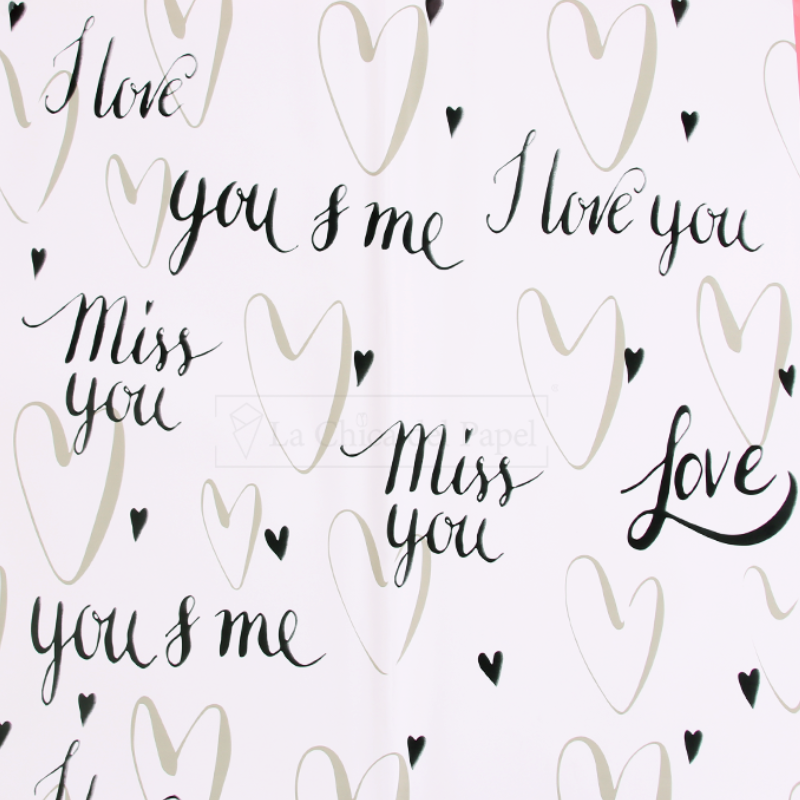 I love
you & me
I love you
Miss
you
La Chica del Papel
Miss
you
Love
you & me